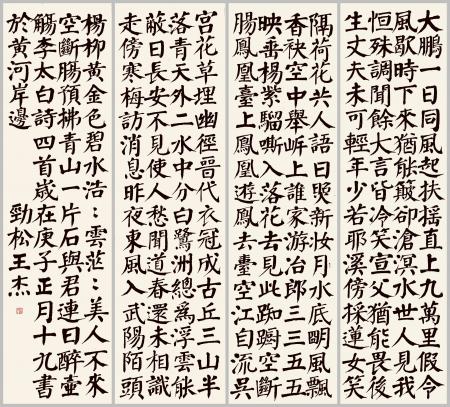 大鹏一日同風起扶摇直上九萬里假令
風歇時下來猶能簸卻滄溟水世人見我
恒殊調聞餘大言皆冷笑宣父猶能畏後
生丈夫未可輕年少若耶溪傍採蓮女笑
隔荷花共人語日照新妝月水底明風飄
香袂空中舉岸上誰家游冶郎三三五五
映垂楊紫騮嘶入落花去見此踟蹰空斷
腸鳳凰臺上鳳凰遊鳳去臺空江自流吳
宫花草埋幽徑晉代衣冠成古丘三山半
落青天外二水中分白鷺洲總爲浮雲能
蔽日長安不見使人愁聞道春還未相識
走傍寒梅訪消息昨夜東風入武陽陌頭
楊柳黄金色碧水浩〻雲茫〻美人不來
空斷腸預拂青山一片石與君連日醉壺
觴李太白詩四首歲在庚子正月十九書
於黄河岸邊 勁松王杰